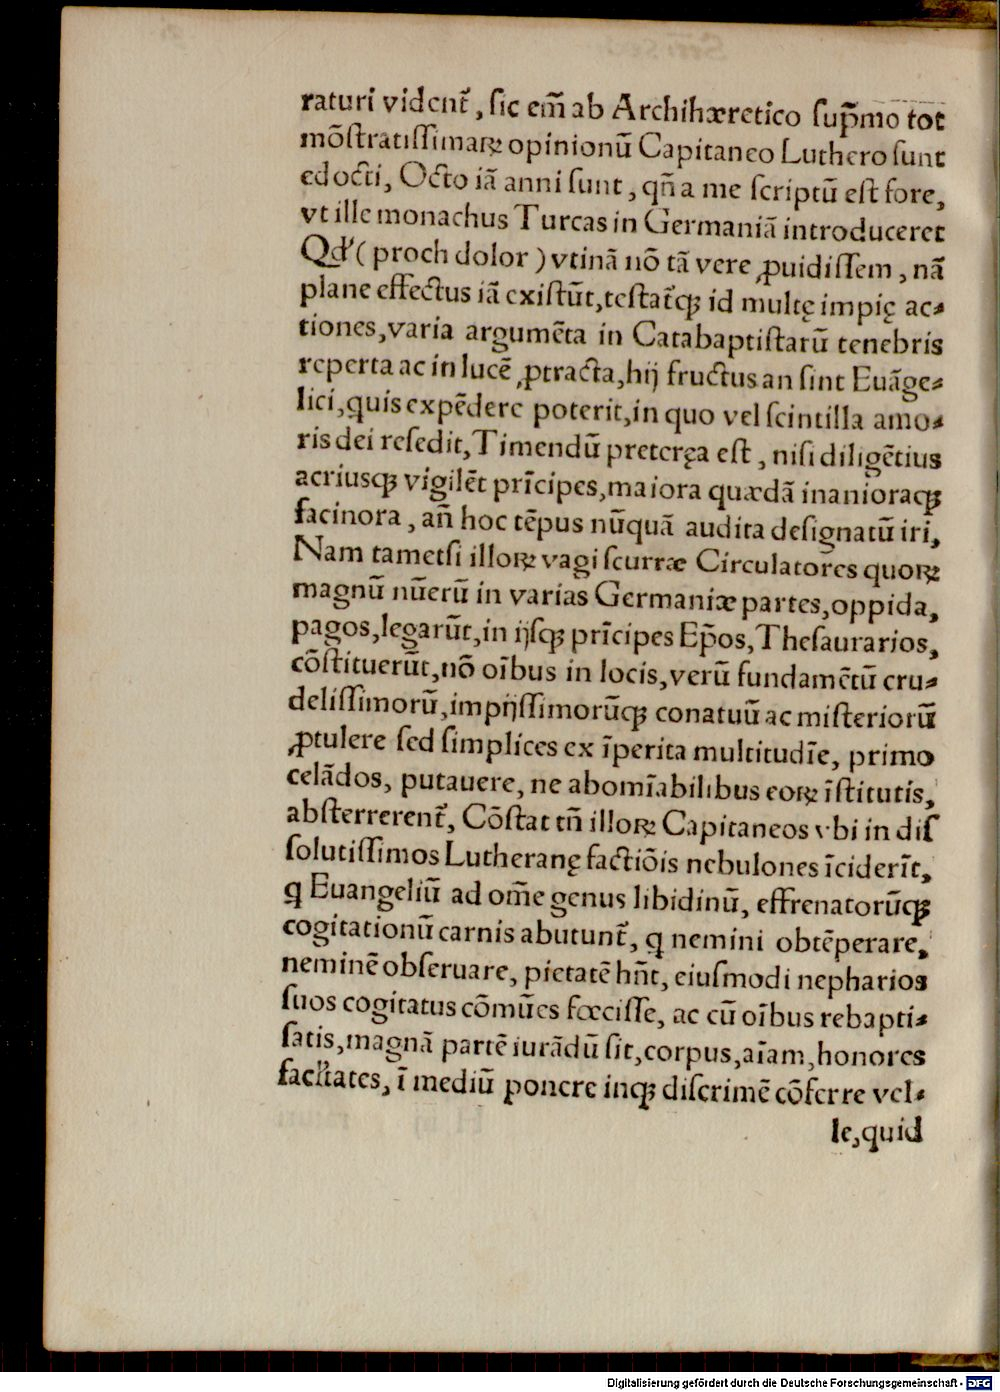 raturi vident᷑, sic em̄ ab Archihæretico sup̄mo tot
mōstratissimaꝝ opinionū Capitaneo Luthero sunt
edocti, Octo iā anni sunt, qn̄ a me scriptū est fore,
vt ille monachus Turcas in Germaniā introduceret
Qđ (proch dolor) vtinā nō tā vere ꝓuidissem, nā
plane effectus iā existūt, testat᷑qꝫ id multę impię ac⸗
tiones, varia argumēta in Catabaptistarū tenebris
reperta ac in lucē ꝓtracta, hij fructus an sint Euāge⸗
lici, quis expēdere poterit, in quo vel scintilla amo⸗
ris dei resedit, Timendū pretcręa est, nisi diligētius
acriusqꝫ vigilēt prīcipes, maiora quædā inanioraqꝫ
facinora, an̄ hoc tēpus nūquā audita designatū iri,
Nam tametsi illoꝝ vagi scurræ Circulatores quoꝝ
magnū nūerū in varias Germaniæ partes, oppida,
pagos, legarūt, in ijsqꝫ prīcipes Ep̄os, Thesaurarios,
cōstituerūt, nō oībus in locis, verū fundamētū cru⸗
delissimorū, impijssimorūqꝫ conatuū ac misteriorū
ꝓtulere sed simplices ex īperita multitudīe, primo
celādos, putauere, ne abomīabilibus eoꝝ īstitutis,
absterrerent᷑, Cōstat tn̄ illoꝝ Capitaneos vbi in dis
solutissimos Lutheranę factiōis nebulones īciderīt,
q Euangeliū ad om̄e genus libidinū, effrenatorūqꝫ
cogitationū carnis abutunt᷑, q nemini obtēperare,
neminē obseruare, pietatē hn̄t, eiusmodi nepharios
suos cogitatus cōmūes fœcisse, ac cū oībus rebapti⸗
satis, magnā partē iurādū sit, corpus, aīam, honores
facl̓tates, ī mediū ponere inqꝫ discrimē cōferre vel⸗
le, quid
Digitalisierung gefördert durch die Deutsche Forschungsgemeinschaft - DFG